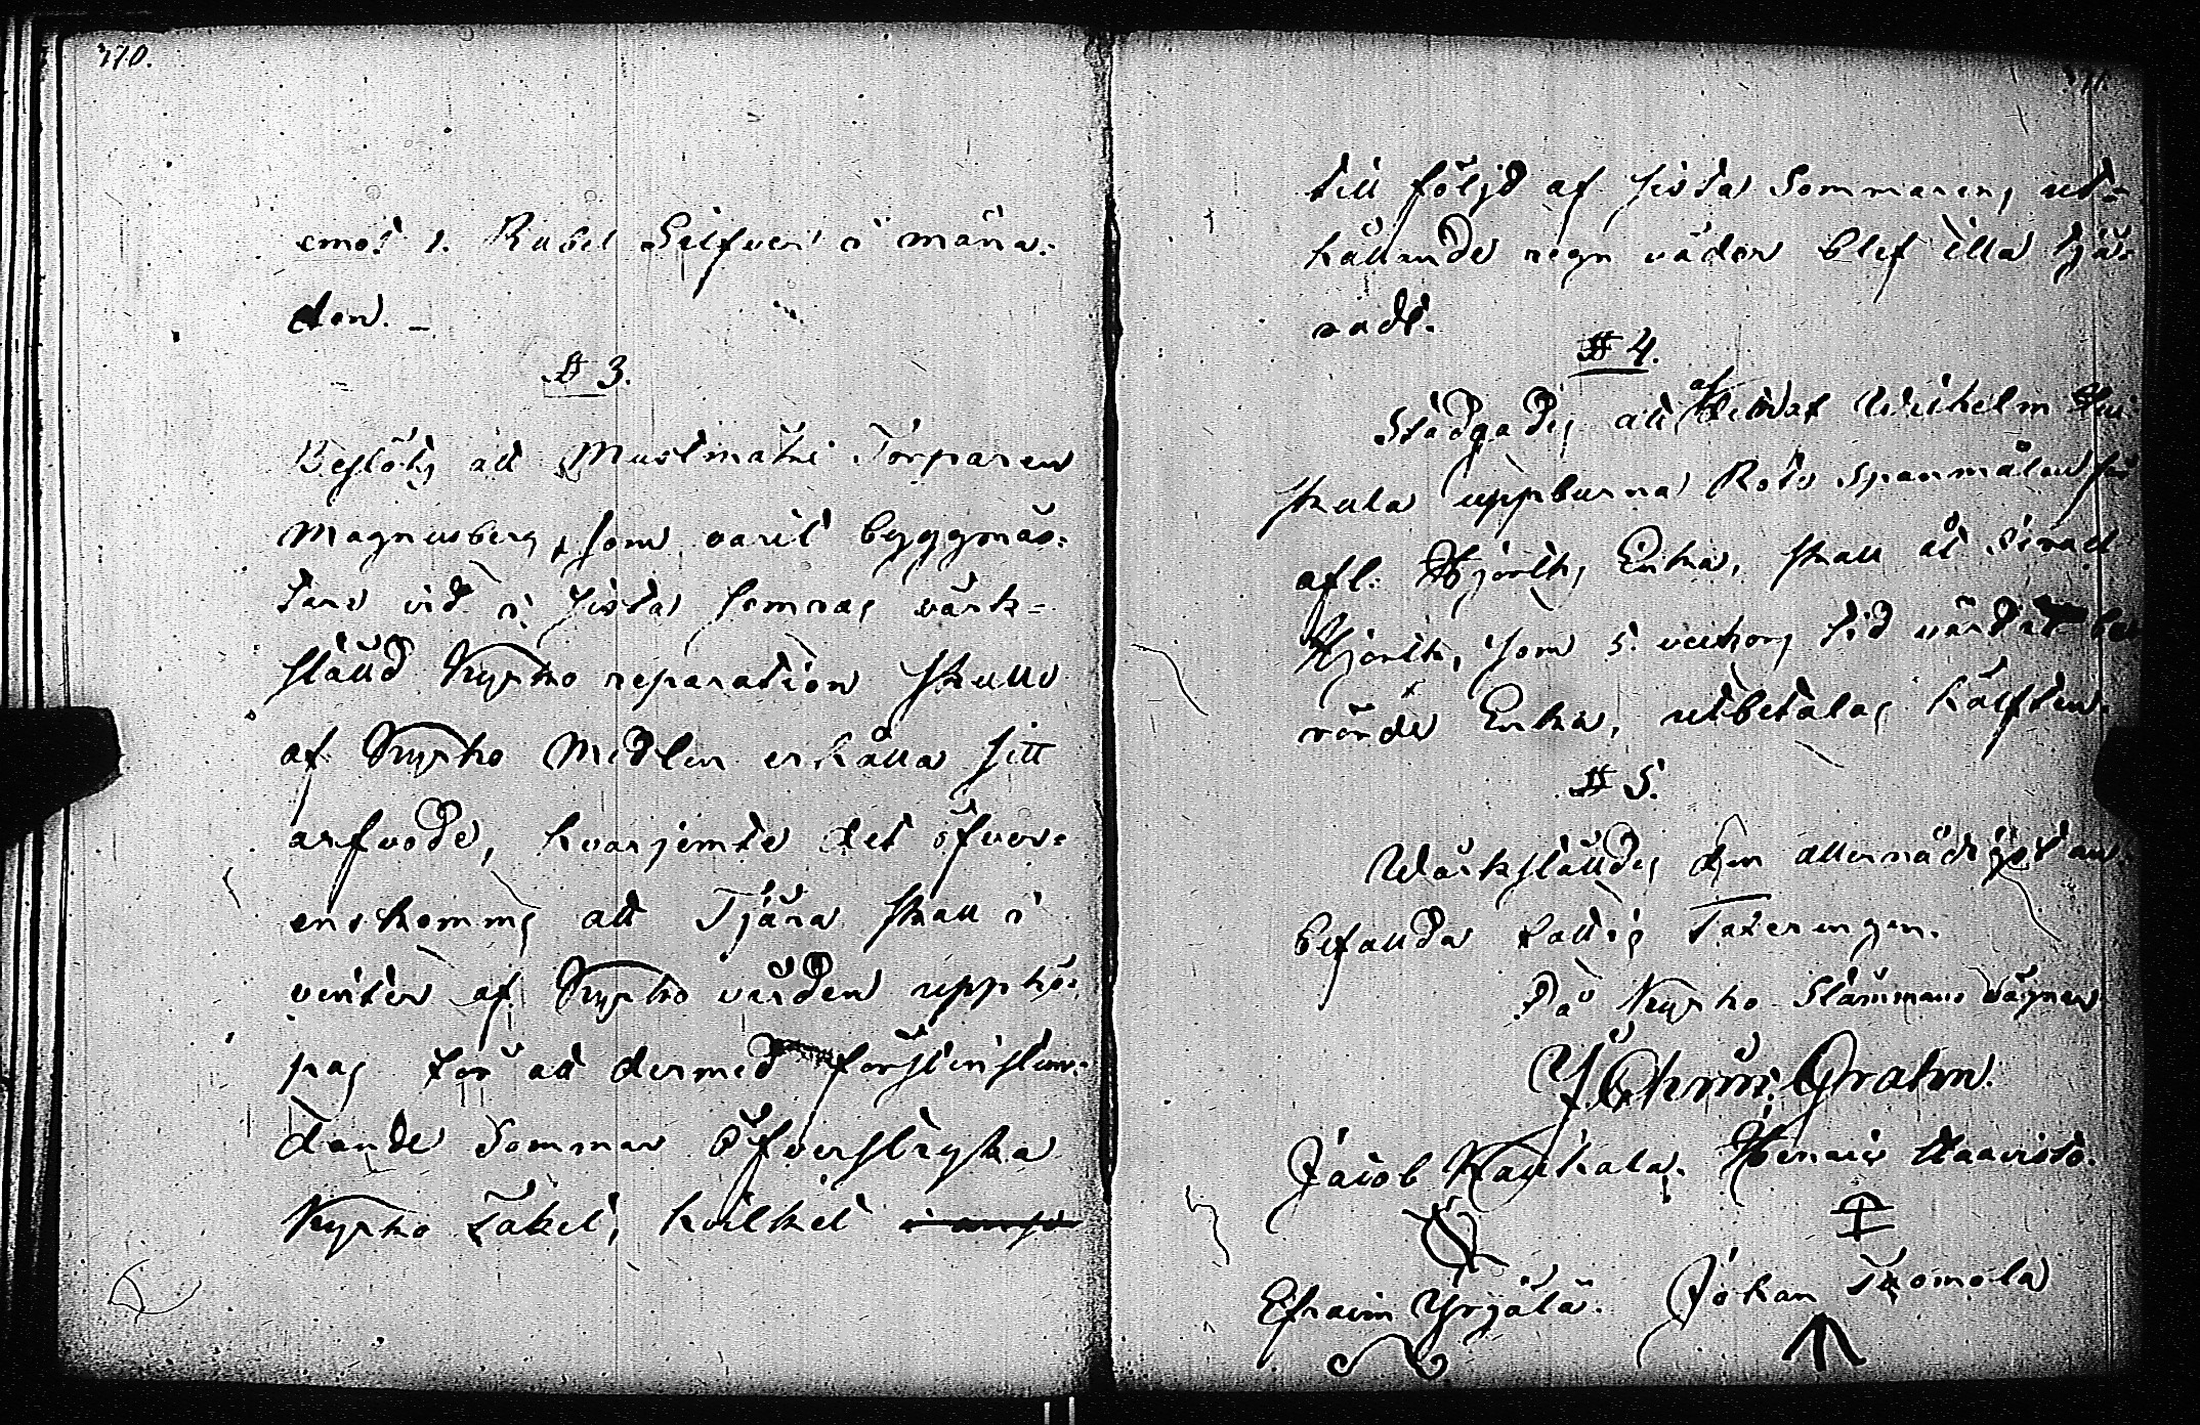 370.
emot 1. Rubel Silfver i måna-
den. —
§ 3.
Beslöts att Mustmätti Torparen
Magnusberg, som varit byggmäs-
tare vid i sista somras värk-
ställd Kyrko reparation skulle
af Kyrko Medlen erhålla sitt
arfvode, hvarjemte det öfver-
enskomms att Tjära skall i
vinter af Kyrko värden uppkö-
pas för att dermed förstinstun-
dande Sommar Öfverstryka
Kyrko taket, hvilket
371.
till följd af sista Sommarens ut-
hållande regn väder blef illa tjä-
radt.
§ 4.
Städgades att af Wilhelm
skula uppburna Rote Spanmålen för
afl. Hjorths Enka, skall åt Sinatt
Hjorth, som 5. veckors tid vårdat be-
rörde Enka, utbetalas hälften.
§ 5.
Wärkställdes den allernådigst an-
befallda Taxeringen.
På Kyrko Stämmans vägnar
Grahn.
Jacob Kauhala. Henric Haavisto.
Efraim Yrjälä. Johan Tuomola